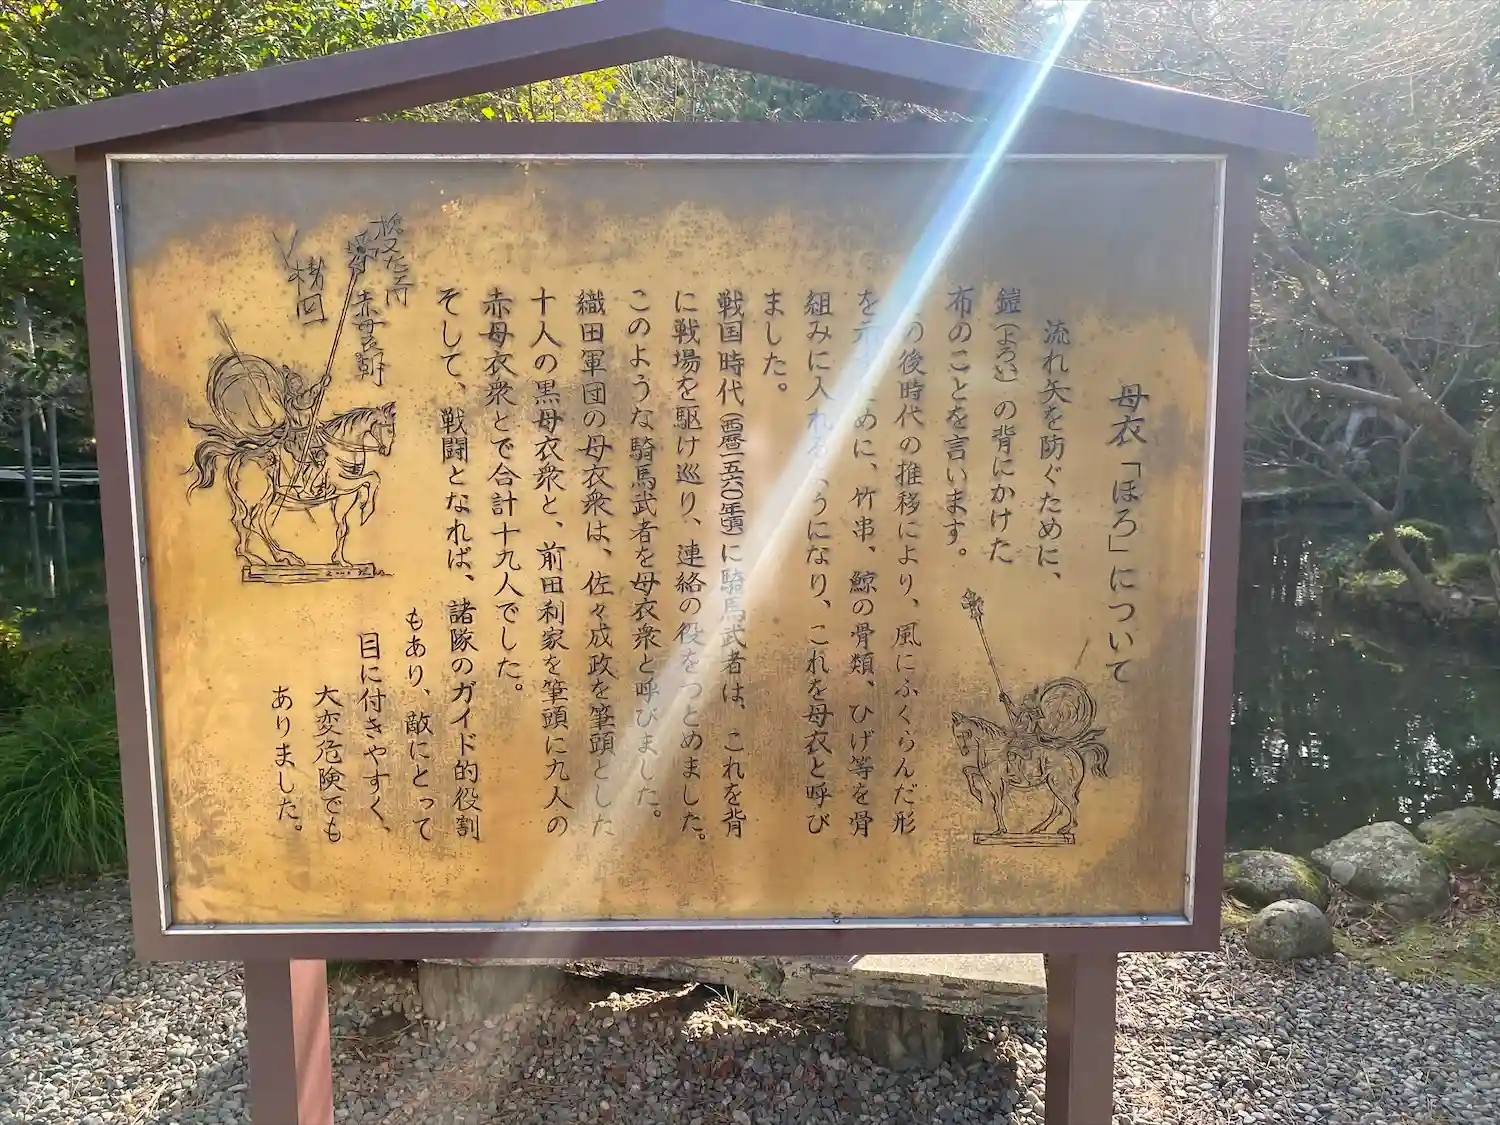 母衣「ほろ」について
流れ矢を防ぐために、
鎧(よろい)の背にかけた
布のことを言います。
の後時代の推移により、風にふくらんだ形
を示すために、竹串、鯨の骨類、ひげ等を骨
組みに入れるようになり、これを母衣と呼び
ました。
戦国時代(西暦一五六〇年頃)に騎馬武者は、これを背
に戦場を駆け巡り、連絡の役をつとめました。
このような騎馬武者を母衣衆と呼びました。
織田軍団の母衣衆は、佐々成政を筆頭とした
十人の黒母衣衆と、前田利家を筆頭に九人の
赤母衣衆とで合計十九人でした。
そして、戦闘となれば、諸隊のガイド的役割
もあり、敵にとって
目に付きやすく、
大変危険でも
ありました。